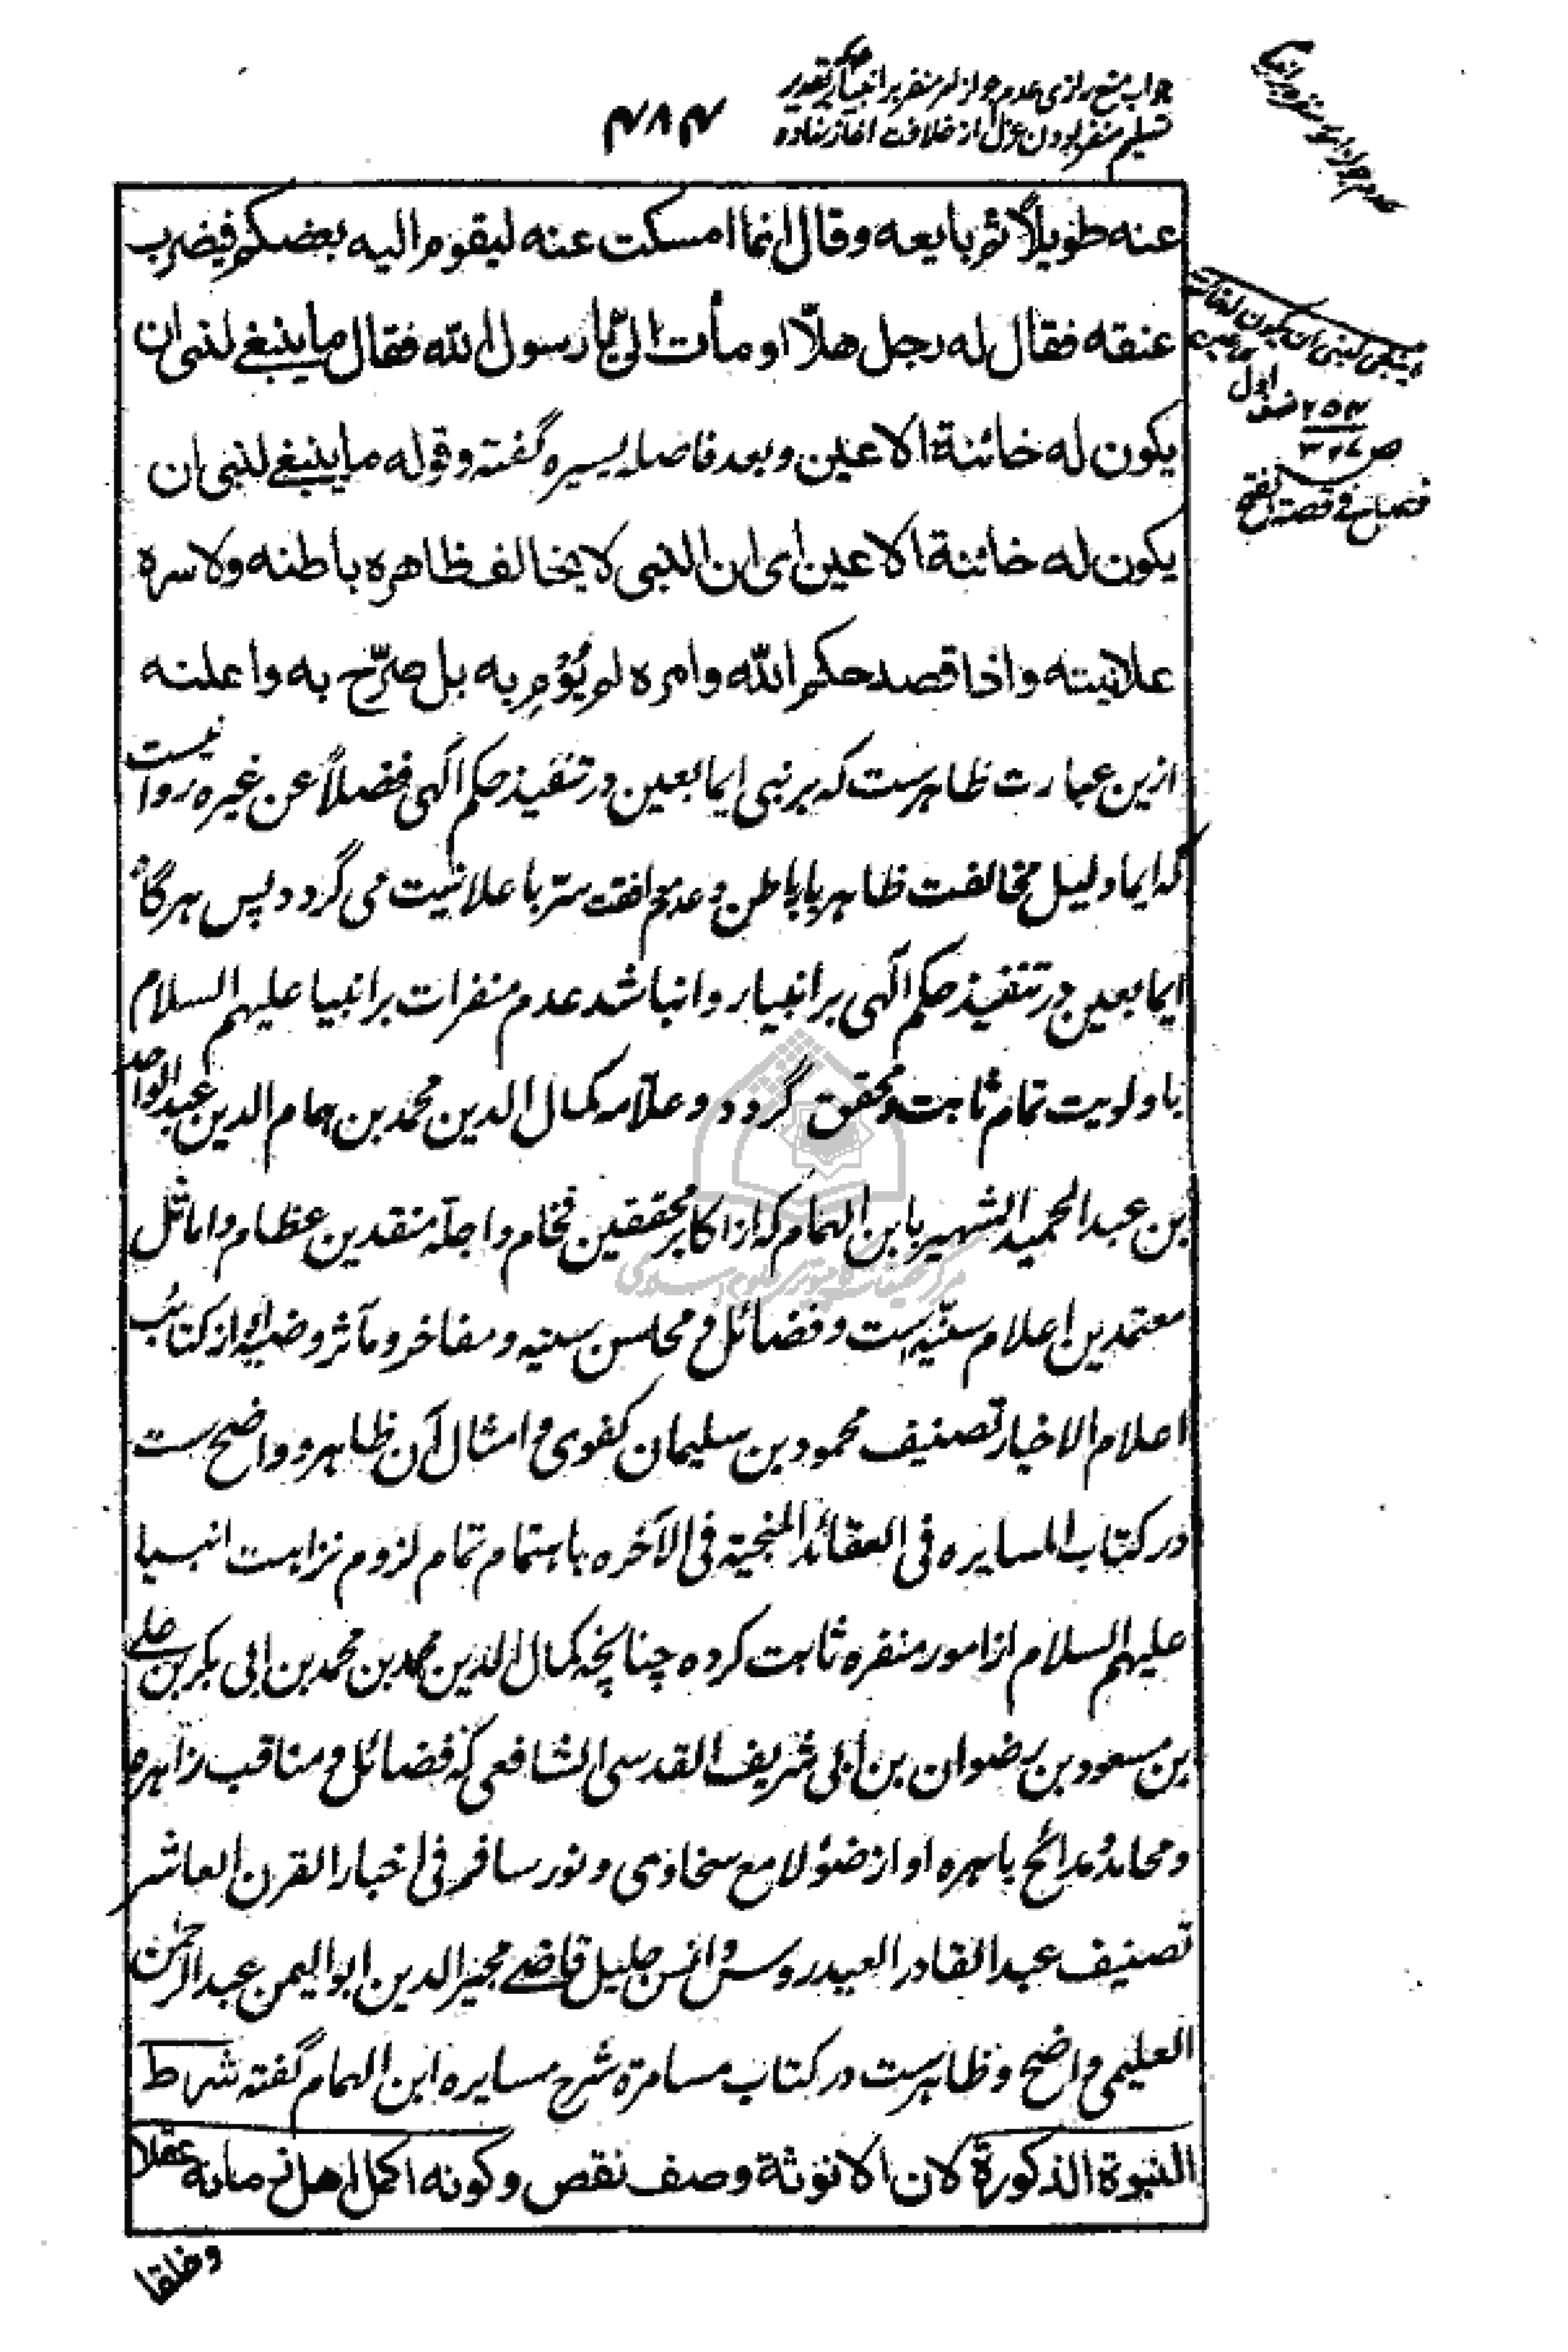 جواب منع رازی عدم جواز امر منفر بر انبیا بر تقدیر
تسلیم منفر بودن عزل از خلافت آغاز نهاده
۴۸۴
عنه طويلاً ثم بايعه وقال انما امسكت عنه ليقوم اليه بعضكم فيضرب
عنقه فقال له رجل هلّا اومأت الىّ يا رسول الله فقال ما ينبغي لنبي ان
يكون له خائنة الاعين وبعد فاصله یسیره گفته وقوله ما ينبغي لنبي ان
يكون له خائنة الاعين اى ان النبى لا يخالف ظاهره باطنه ولا سره
علانيته واذا قصد حكم الله وامره لم يُؤمِ به بل صرّح به واعلنه
ازین عبارت ظاهرست که بر نبی ایما بعین در تنفیذ حکم الهی فضلاً عن غیره روا نیست
که ایما دلیل مخالفت ظاهر با باطن و عدم موافقت سرّ با علانیت می گردد پس هرگاه
ایما بعین در تنفیذ حکم الهی بر انبیا روا نباشد عدم منفرات بر انبیا علیهم السلام
باولویت تمام ثابت و محقق گردد و علّامه کمال الدین محمد بن همام الدین عبد الواحد
بن عبد الحمید الشهیر بابن الهمام که از اکابر محققین فخام و اجلّه منقدین عظام و اماثل
معتمدین اعلام سنّیه است و فضائل و محاسن سنیه و مفاخر و مآثر وضیه او از کتائب
اعلام الاخیار تصنیف محمود بن سلیمان کفوی و امثال آن ظاهر و واضح ست
در کتاب المسایره فی العقائد المنجیة فی الآخره باهتمام تمام لزوم نزاهت انبیا
علیهم السلام از امور منفره ثابت کرده چنانچه کمال الدین محمد بن محمد بن ابی بکر بن علی
بن مسعود بن رضوان بن ابی شریف القدسی الشافعی که فضائل و مناقب زاهره
و محامد و مدائح باهره او از ضوء لامع سخاوی و نور سافر فی اخبار القرن العاشر
تصنیف عبد القادر العیدروس و انس جلیل قاضی مجیر الدین ابو الیمن عبد الرحمن
العلیمی واضح و ظاهرست در کتاب مسامرة شرح مسایره ابن الهمام گفته شرط
النبوة الذكورة لان الانوثة وصف نقص وكونه اكمل اهل زمانه عقلا
وخلقا
ما ينبغي لنبي ان يكون له خائنة
الاعين